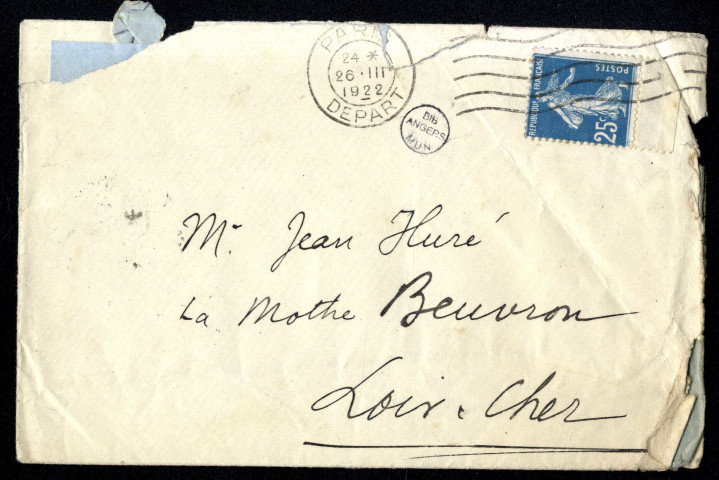 PARIS
24 *
26 · III
1922
DEPART
BIB
ANGERS
MUN
REPUBLIQUE FRANÇAISE
POSTES
25c
Mr Jean Huré
La Mothe Beuvron
Loir & Cher